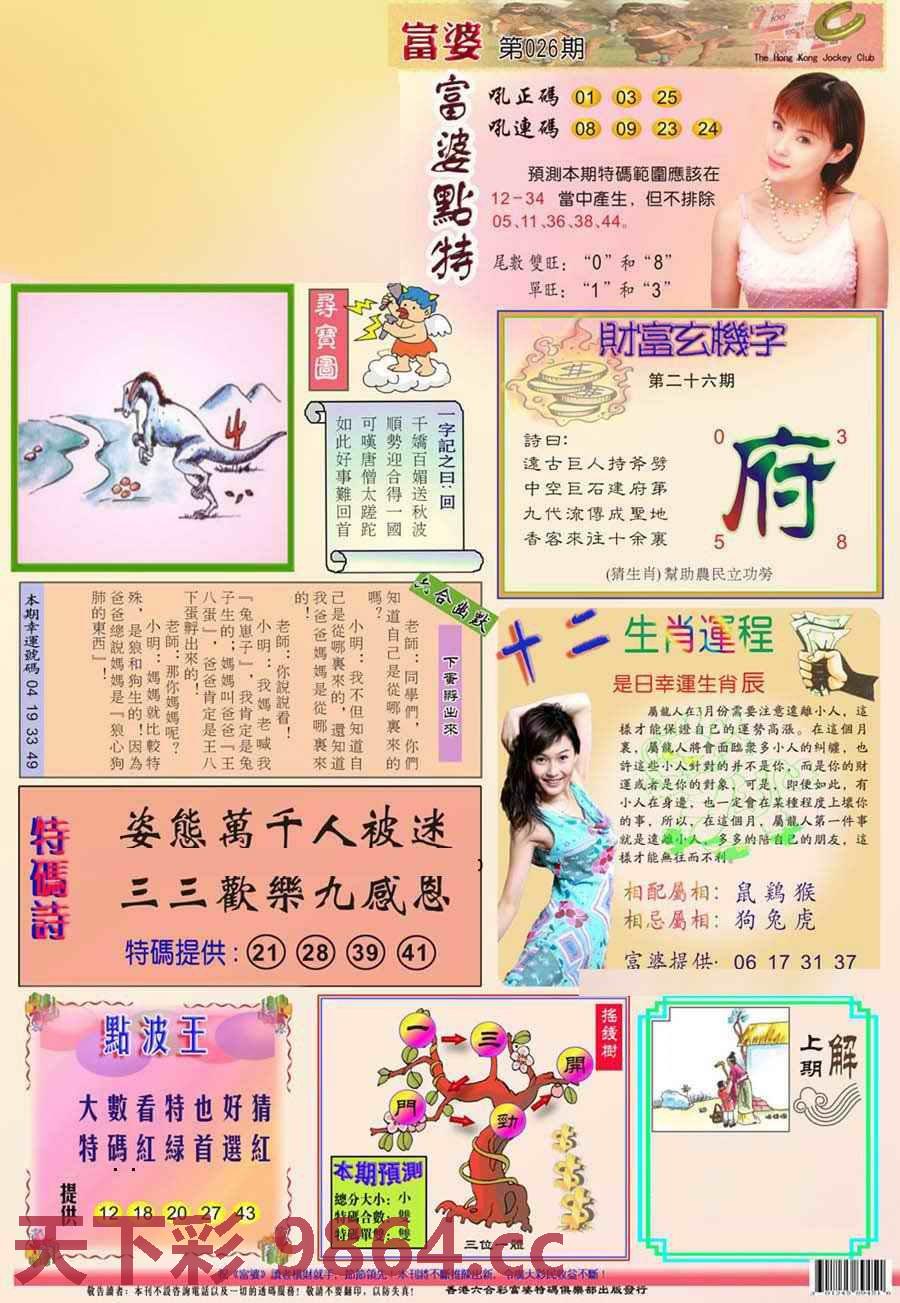 富婆 第026期
The Hong Kong Jockey Club
富婆點特
吼正碼 01 03 25
吼連碼 08 09 23 24
預測本期特碼範圍應該在
12-34 當中產生，但不排除
05、11、36、38、44。
尾數雙旺：“0”和“8”
單旺：“1”和“3”
尋寶圖
一字記之曰：回
千嬌百媚送秋波
順勢迎合得一國
可嘆唐僧太蹉跎
如此好事難回首
財富玄機字
第二十六期
詩曰：
遠古巨人持斧劈
中空巨石建府第
九代流傳成聖地
香客來往十余裏
0 3
府
5 8
(猜生肖)幫助農民立功勞
六合幽默
下蛋孵出來
老師：同學們，你們
知道自己是從哪裏來的
嗎？
小明：我不但知道自
己是從哪裏來的，還知道
我爸爸媽媽是從哪裏來
的！
老師：你說說看！
小明：我媽老喊我
『兔崽子』，我肯定是兔
子生的，媽媽叫爸爸『王
八蛋』，爸爸肯定是王八
下蛋孵出來的！
老師：那你媽媽呢？
小明：媽媽就比較特
殊，是狼和狗生的！因為
爸爸總說媽媽是『狼心狗
肺的東西』！
本期幸運號碼 04 19 33 49
十二生肖運程
是日幸運生肖辰
屬龍人在3月份需要注意遠離小人，這
樣才能保證自己的運勢高漲。在這個月
裏，屬龍人將會面臨衆多小人的糾纏，也
許這些小人針對的并不是你，而是你的財
運或者是你的對象，可是，即便如此，有
小人在身邊，也一定會在某種程度上壞你
的事，所以，在這個月，屬龍人第一件事
就是遠離小人，多多的陪自己的朋友，這
樣才能無往而不利。
相配屬相：鼠 鷄 猴
相忌屬相：狗 兔 虎
富婆提供：06 17 31 37
特碼詩
姿態萬千人被迷
三三歡樂九感恩
特碼提供：21 28 39 41
點波王
大數看特也好猜
特碼紅綠首選紅
提供 12 18 20 27 43
搖錢樹
一 三 開
門 勁
本期預測
總分大小：小
特碼合數：雙
特碼單雙：雙
上期解
天下彩 9864.cc
祝《富婆》讀者橫財就手，節節領先！本刊將不斷推陳出新，令廣大彩民收益不斷！
敬告讀者：本刊不設咨詢電話以及一切的透碼服務！敬請不要翻印，以防失真！
香港六合彩富婆特碼俱樂部出版發行